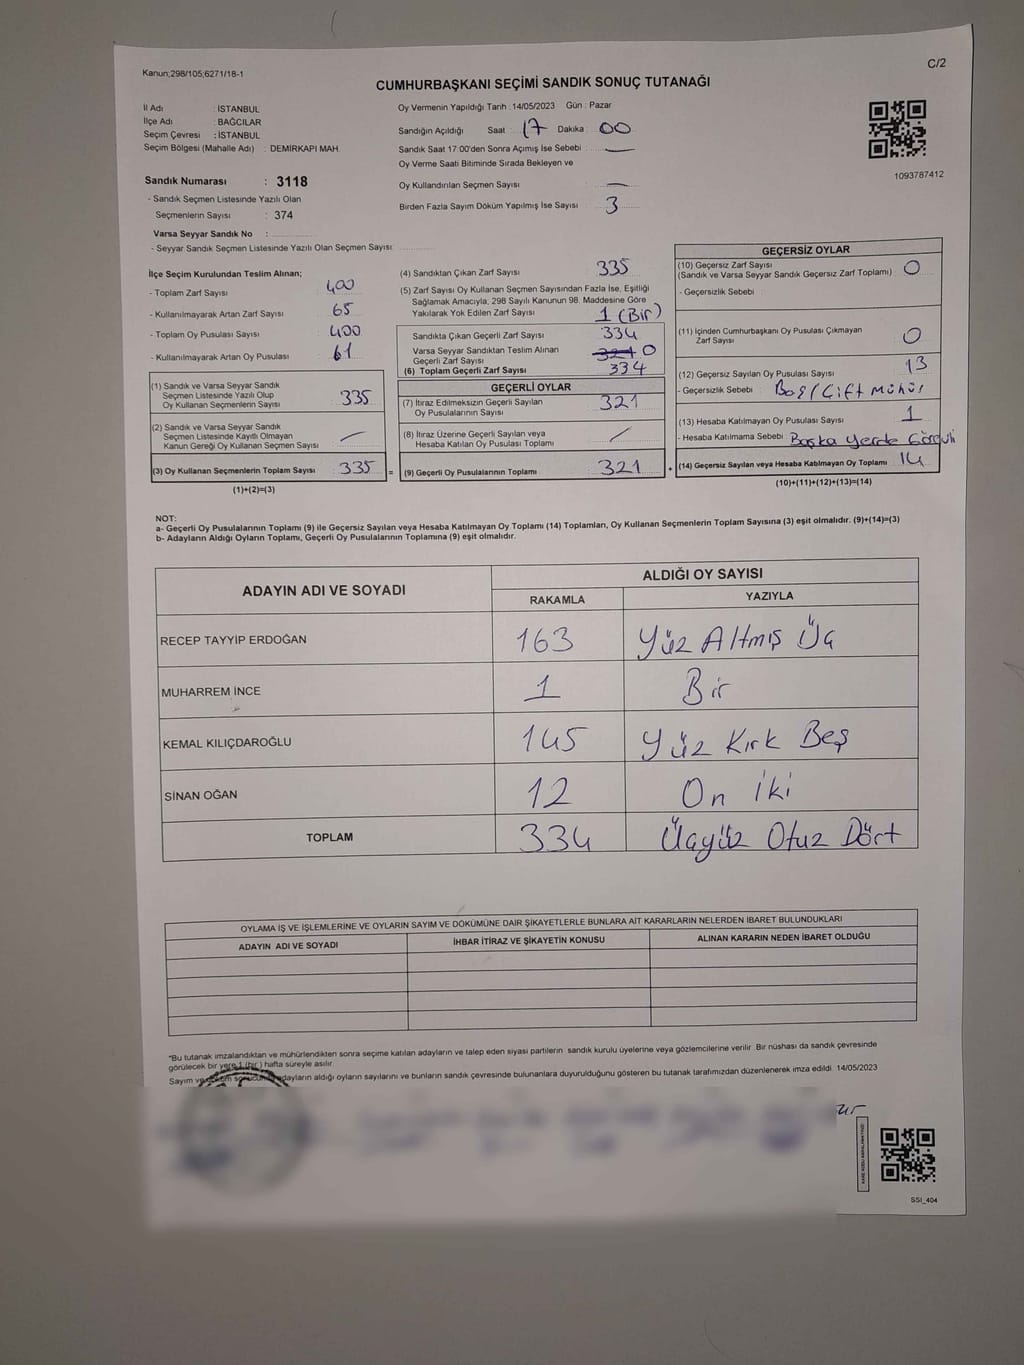 Kanun;298/105;6271/18-1
C/2
CUMHURBAŞKANI SEÇİMİ SANDIK SONUÇ TUTANAĞI
İl Adı : İSTANBUL
İlçe Adı : BAĞCILAR
Seçim Çevresi : İSTANBUL
Seçim Bölgesi (Mahalle Adı) : DEMİRKAPI MAH.
Sandık Numarası : 3118
- Sandık Seçmen Listesinde Yazılı Olan
Seçmenlerin Sayısı : 374
Varsa Seyyar Sandık No :
- Seyyar Sandık Seçmen Listesinde Yazılı Olan Seçmen Sayısı
Oy Vermenin Yapıldığı Tarih :14/05/2023 Gün : Pazar
Sandığın Açıldığı Saat : 17 Dakika : 00
Sandık Saat 17:00'den Sonra Açımış İse Sebebi : —
Oy Verme Saati Bitiminde Sırada Bekleyen ve
Oy Kullandırılan Seçmen Sayısı —
Birden Fazla Sayım Döküm Yapılmış İse Sayısı 3
1093787412
İlçe Seçim Kurulundan Teslim Alınan;
- Toplam Zarf Sayısı : 400
- Kullanılmayarak Artan Zarf Sayısı : 65
- Toplam Oy Pusulası Sayısı : 400
- Kullanılmayarak Artan Oy Pusulası : 61
(1) Sandık ve Varsa Seyyar Sandık
Seçmen Listesinde Yazılı Olup
Oy Kullanan Seçmenlerin Sayısı 335
(2) Sandık ve Varsa Seyyar Sandık
Seçmen Listesinde Kayıtlı Olmayan
Kanun Gereği Oy Kullanan Seçmen Sayısı —
(3) Oy Kullanan Seçmenlerin Toplam Sayısı 335 =
(1)+(2)=(3)
(4) Sandıktan Çıkan Zarf Sayısı 335
(5) Zarf Sayısı Oy Kullanan Seçmen Sayısından Fazla İse, Eşitliği
Sağlamak Amacıyla, 298 Sayılı Kanunun 98. Maddesine Göre
Yakılarak Yok Edilen Zarf Sayısı 1 (Bir)
Sandıkta Çıkan Geçerli Zarf Sayısı 334
Varsa Seyyar Sandıktan Teslim Alınan
Geçerli Zarf Sayısı 0
(6) Toplam Geçerli Zarf Sayısı 334
GEÇERLİ OYLAR
(7) İtiraz Edilmeksizin Geçerli Sayılan
Oy Pusulalarının Sayısı 321
(8) İtiraz Üzerine Geçerli Sayılan veya
Hesaba Katılan Oy Pusulası Toplamı /
(9) Geçerli Oy Pusulalarının Toplamı 321
GEÇERSİZ OYLAR
(10) Geçersiz Zarf Sayısı
(Sandık ve Varsa Seyyar Sandık Geçersiz Zarf Toplamı) 0
- Geçersizlik Sebebi :
(11) İçinden Cumhurbaşkanı Oy Pusulası Çıkmayan
Zarf Sayısı 0
(12) Geçersiz Sayılan Oy Pusulası Sayısı 13
- Geçersizlik Sebebi : Boş/Çift Mühür
(13) Hesaba Katılmayan Oy Pusulası Sayısı 1
- Hesaba Katılmama Sebebi : Başka yerde Görevli
(14) Geçersiz Sayılan veya Hesaba Katılmayan Oy Toplamı 14
(10)+(11)+(12)+(13)=(14)
NOT:
a- Geçerli Oy Pusulalarının Toplamı (9) ile Geçersiz Sayılan veya Hesaba Katılmayan Oy Toplamı (14) Toplamları, Oy Kullanan Seçmenlerin Toplam Sayısına (3) eşit olmalıdır. (9)+(14)=(3)
b- Adayların Aldığı Oyların Toplamı, Geçerli Oy Pusulalarının Toplamına (9) eşit olmalıdır.
ADAYIN ADI VE SOYADI
ALDIĞI OY SAYISI
RAKAMLA YAZIYLA
RECEP TAYYİP ERDOĞAN 163 Yüz Altmış Üç
MUHARREM İNCE 1 Bir
KEMAL KILIÇDAROĞLU 145 Yüz Kırk Beş
SİNAN OĞAN 12 On iki
TOPLAM 334 Üçyüz Otuz Dört
OYLAMA İŞ VE İŞLEMLERİNE VE OYLARIN SAYIM VE DÖKÜMÜNE DAİR ŞİKAYETLERLE BUNLARA AİT KARARLARIN NELERDEN İBARET BULUNDUKLARI
ADAYIN ADI VE SOYADI İHBAR İTİRAZ VE ŞİKAYETİN KONUSU ALINAN KARARIN NEDEN İBARET OLDUĞU
"Bu tutanak imzalandıktan ve mühürlendikten sonra seçime katılan adayların ve talep eden siyasi partilerin sandık kurulu üyelerine veya gözlemcilerine verilir. Bir nüshası da sandık çevresinde
görülecek bir yere 1 (bir) hafta süreyle asılır.
Sayım ve döküm sonucunda adayların aldığı oyların sayılarını ve bunların sandık çevresinde bulunanlara duyurulduğunu gösteren bu tutanak tarafımızdan düzenlenerek imza edildi. 14/05/2023
SSI_404